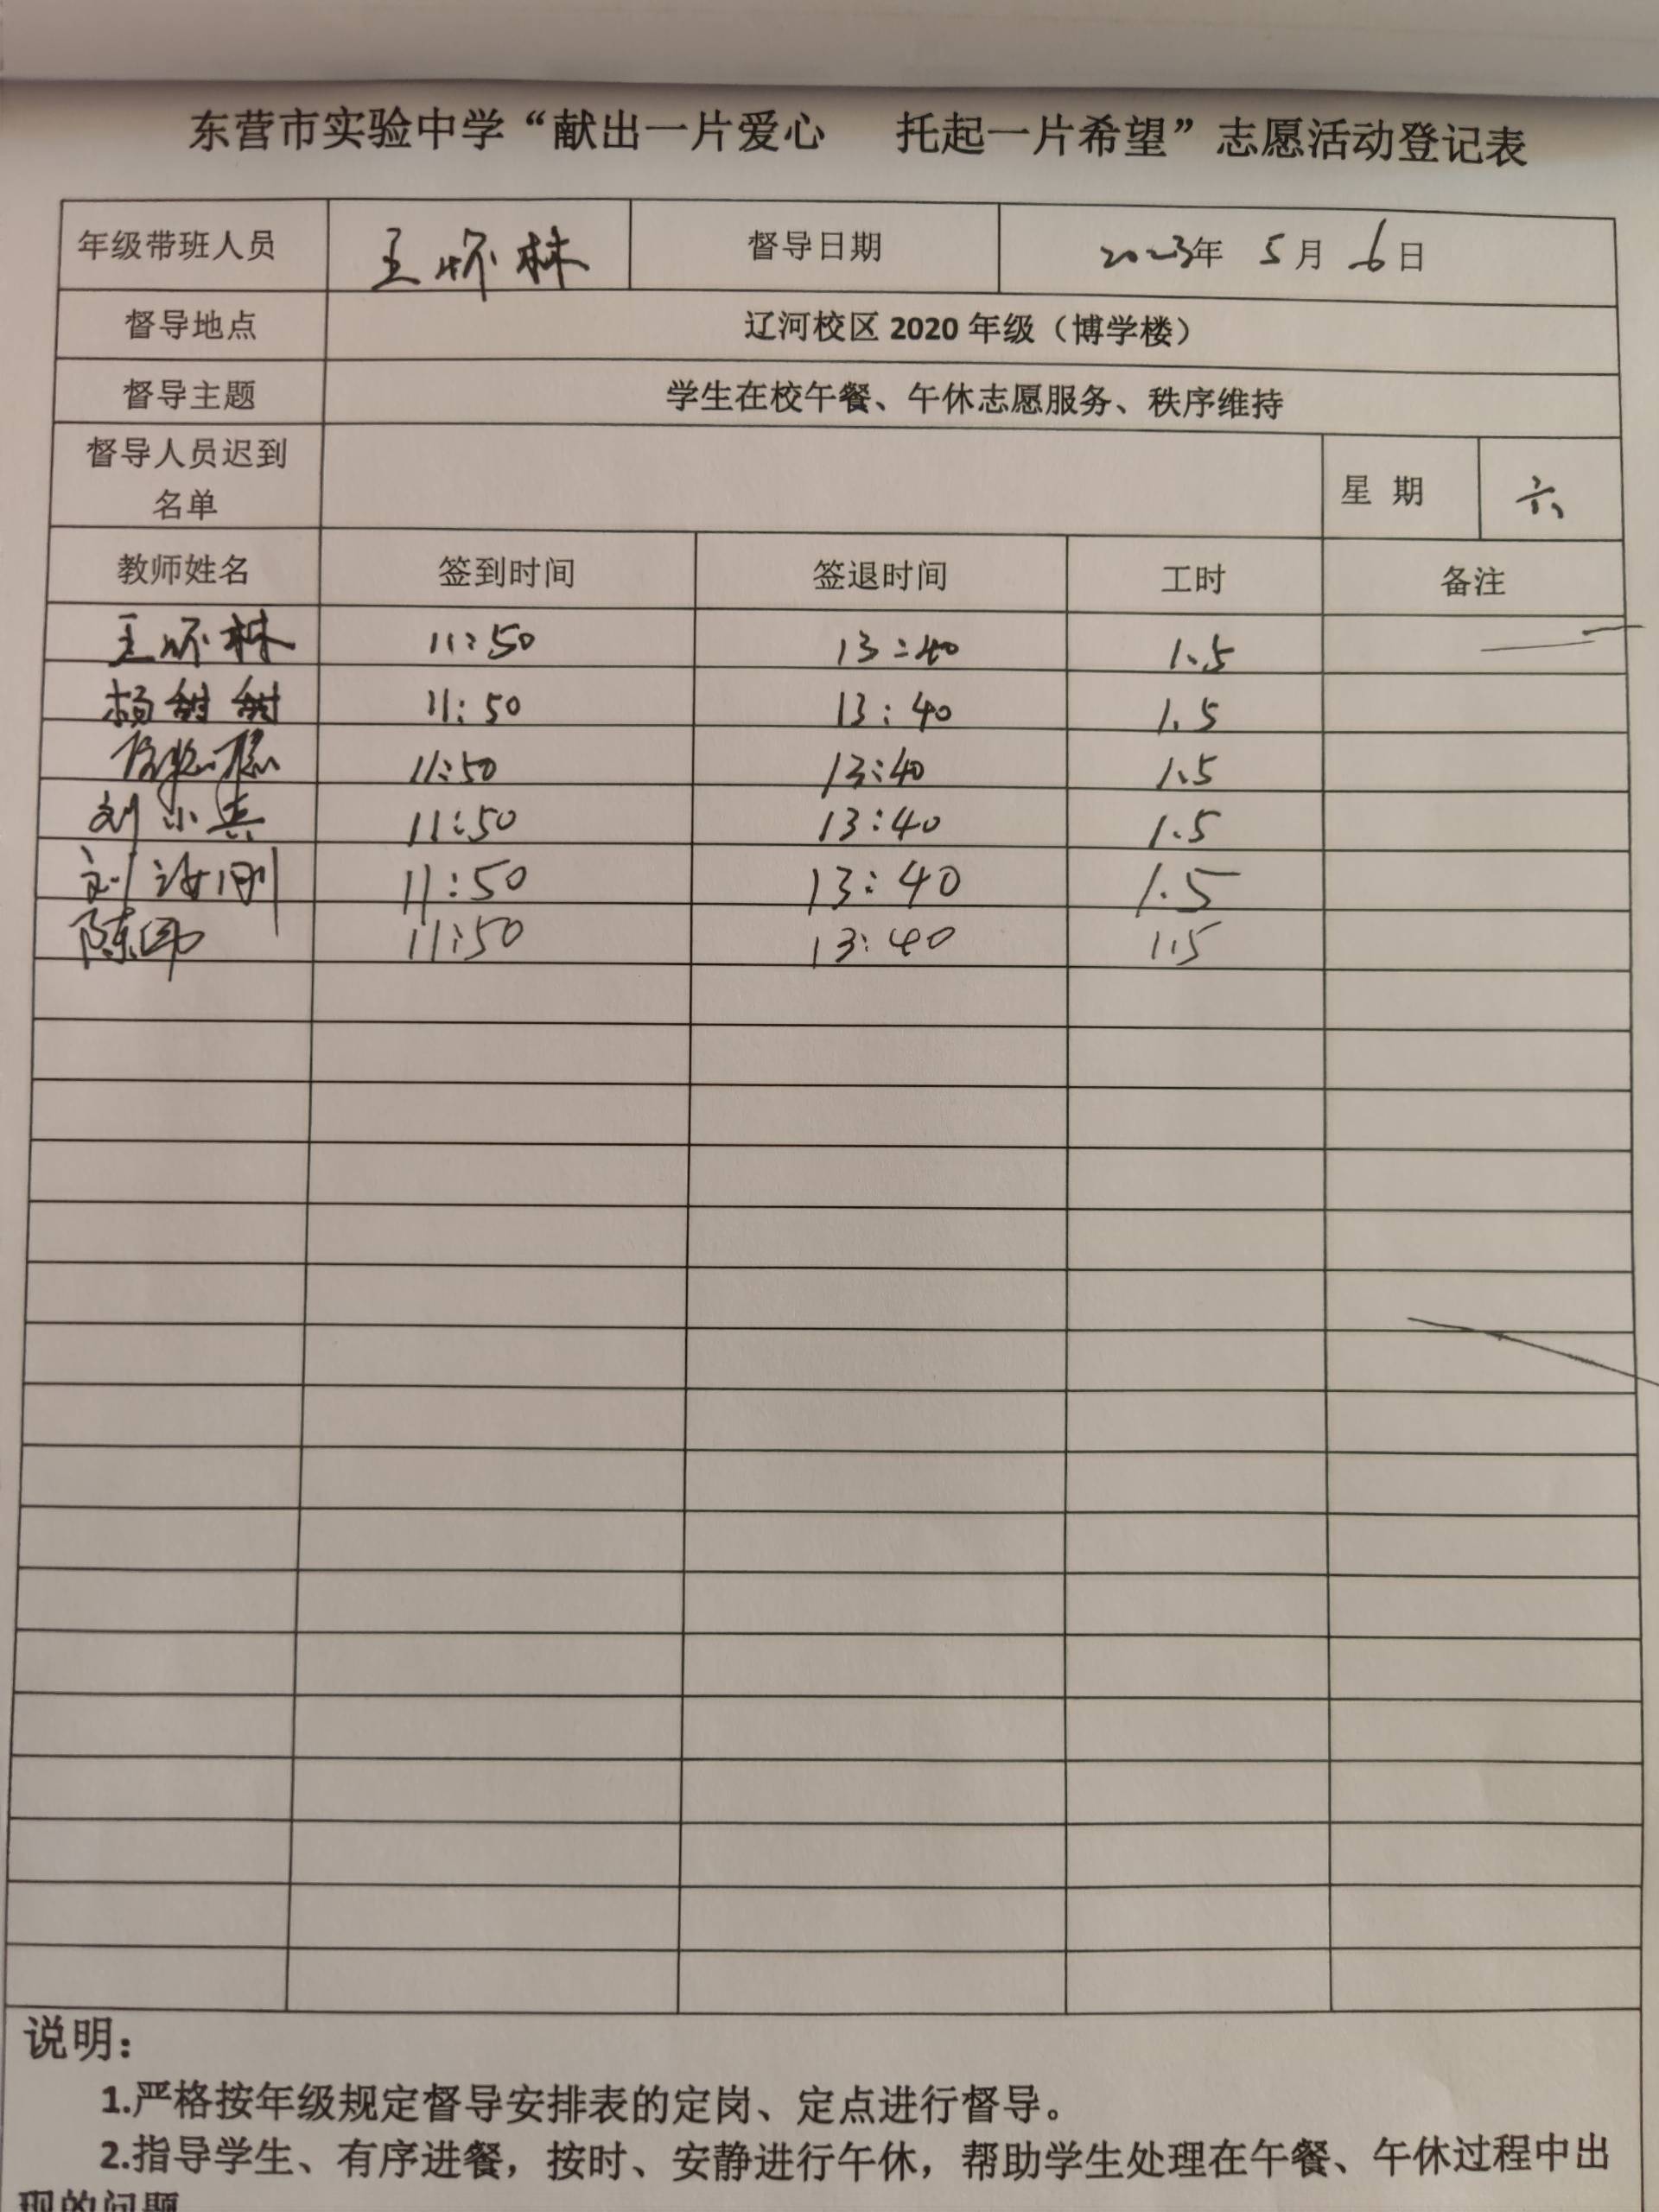 东营市实验中学“献出一片爱心 托起一片希望”志愿活动登记表
年级带班人员 王怀林 督导日期 2023年 5月 6日
督导地点 辽河校区 2020 年级（博学楼）
督导主题 学生在校午餐、午休志愿服务、秩序维持
督导人员迟到名单 星 期 六
教师姓名 签到时间 签退时间 工时 备注
王怀林 11:50 13:40 1.5
杨甜甜 11:50 13:40 1.5
11:50 13:40 1.5
刘小兵 11:50 13:40 1.5
刘汝刚 11:50 13:40 1.5
陈 11:50 13:40 1.5
说明：
1.严格按年级规定督导安排表的定岗、定点进行督导。
2.指导学生、有序进餐，按时、安静进行午休，帮助学生处理在午餐、午休过程中出
现的问题